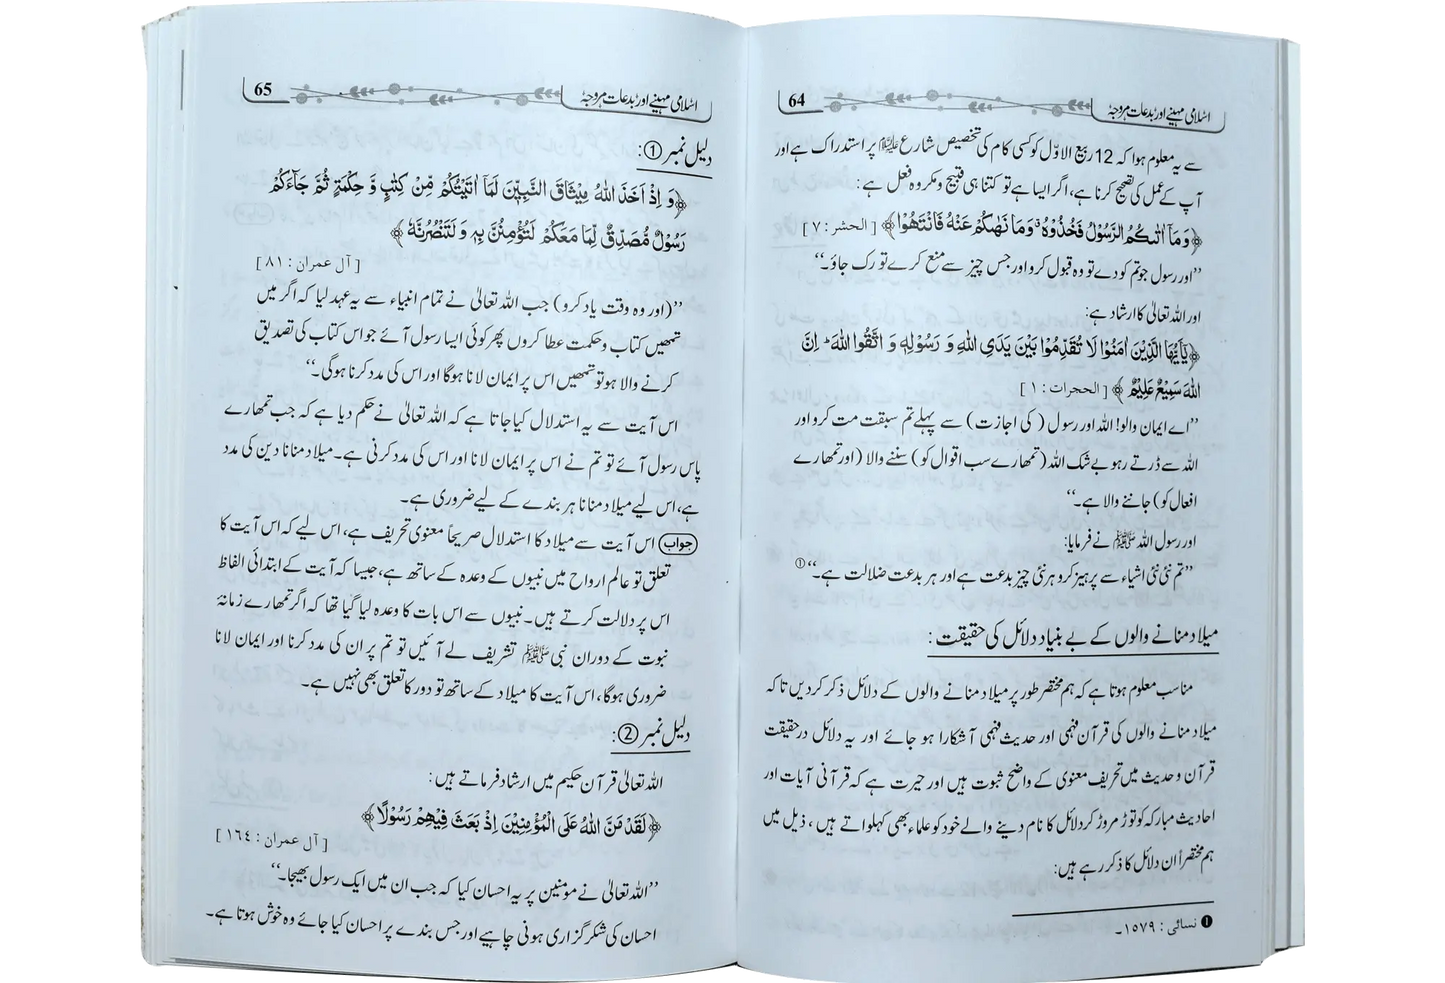 اسلامی مہینے اور بدعات مروجہ 64
سے یہ معلوم ہوا کہ 12 ربیع الاوّل کو کسی کام کی تخصیص شارع علیہ السلام پر استدراک ہے اور
آپ کے عمل کی تصحیح کرنا ہے، اگر ایسا ہے تو کتنا ہی قبیح و مکروہ فعل ہے:
﴿وَمَآ اٰتٰىكُمُ الرَّسُوْلُ فَخُذُوْهُ ۚ وَمَا نَهٰىكُمْ عَنْهُ فَانْتَهُوْا﴾ [الحشر: ۷]
’’اور رسول جو تم کو دے تو وہ قبول کرو اور جس چیز سے منع کرے تو رک جاؤ۔‘‘
اور اللہ تعالیٰ کا ارشاد ہے:
﴿يٰٓاَيُّهَا الَّذِيْنَ اٰمَنُوْا لَا تُقَدِّمُوْا بَيْنَ يَدَيِ اللّٰهِ وَ رَسُوْلِهٖ وَ اتَّقُوا اللّٰهَ ؕ اِنَّ
اللّٰهَ سَمِيْعٌ عَلِيْمٌ﴾ [الحجرات: ۱]
’’اے ایمان والو! اللہ اور رسول (کی اجازت) سے پہلے تم سبقت مت کرو اور
اللہ سے ڈرتے رہو بے شک اللہ (تمھارے سب اقوال کو) سننے والا (اور تمھارے
افعال کو) جاننے والا ہے۔‘‘
اور رسول اللہ ﷺ نے فرمایا:
’’تم نئی نئی اشیاء سے پرہیز کرو ہر نئی چیز بدعت ہے اور ہر بدعت ضلالت ہے۔‘‘ ①
میلاد منانے والوں کے بے بنیاد دلائل کی حقیقت:
مناسب معلوم ہوتا ہے کہ ہم مختصر طور پر میلاد منانے والوں کے دلائل ذکر کردیں تاکہ
میلاد منانے والوں کی قرآن فہمی اور حدیث فہمی آشکارا ہو جائے اور یہ دلائل درحقیقت
قرآن و حدیث میں تحریف معنوی کے واضح ثبوت ہیں اور حیرت ہے کہ قرآنی آیات اور
احادیث مبارکہ کو توڑ مروڑ کر دلائل کا نام دینے والے خود کو علماء بھی کہلواتے ہیں، ذیل میں
ہم مختصراً ان دلائل کا ذکر رہے ہیں:
❶ نسائی: ۱۵۷۹۔
اسلامی مہینے اور بدعات مروجہ 65
دلیل نمبر ①:
﴿وَ اِذْ اَخَذَ اللّٰهُ مِيْثَاقَ النَّبِيّٖنَ لَمَاۤ اٰتَيْتُكُمْ مِّنْ كِتٰبٍ وَّ حِكْمَةٍ ثُمَّ جَآءَكُمْ
رَسُوْلٌ مُّصَدِّقٌ لِّمَا مَعَكُمْ لَتُؤْمِنُنَّ بِهٖ وَ لَتَنْصُرُنَّهٗ﴾
[آل عمران: ۸۱]
’’(اور وہ وقت یاد کرو) جب اللہ تعالیٰ نے تمام انبیاء سے یہ عہد لیا کہ اگر میں
تمھیں کتاب و حکمت عطا کروں پھر کوئی ایسا رسول آئے جو اس کتاب کی تصدیق
کرنے والا ہو تو تمھیں اس پر ایمان لانا ہوگا اور اس کی مدد کرنا ہوگی۔‘‘
اس آیت سے یہ استدلال کیا جاتا ہے کہ اللہ تعالیٰ نے حکم دیا ہے کہ جب تمھارے
پاس رسول آئے تو تم نے اس پر ایمان لانا اور اس کی مدد کرنی ہے۔ میلاد منانا دین کی مدد
ہے، اس لیے میلاد منانا ہر بندے کے لیے ضروری ہے۔
جواب اس آیت سے میلاد کا استدلال صریحاً معنوی تحریف ہے، اس لیے کہ اس آیت کا
تعلق تو عالم ارواح میں نبیوں کے وعدہ کے ساتھ ہے، جیسا کہ آیت کے ابتدائی الفاظ
اس پر دلالت کرتے ہیں۔ نبیوں سے اس بات کا وعدہ لیا گیا تھا کہ اگر تمھارے زمانۂ
نبوت کے دوران نبی ﷺ تشریف لے آئیں تو تم پر ان کی مدد کرنا اور ایمان لانا
ضروری ہوگا، اس آیت کا میلاد کے ساتھ تو دور کا تعلق بھی نہیں ہے۔
دلیل نمبر ②:
اللہ تعالیٰ قرآن حکیم میں ارشاد فرماتے ہیں:
﴿لَقَدْ مَنَّ اللّٰهُ عَلَى الْمُؤْمِنِيْنَ اِذْ بَعَثَ فِيْهِمْ رَسُوْلًا﴾
[آل عمران: ۱۶۴]
’’اللہ تعالیٰ نے مومنین پر یہ احسان کیا کہ جب ان میں ایک رسول بھیجا۔‘‘
احسان کی شکر گزاری ہونی چاہیے اور جس بندے پر احسان کیا جائے وہ خوش ہوتا ہے۔